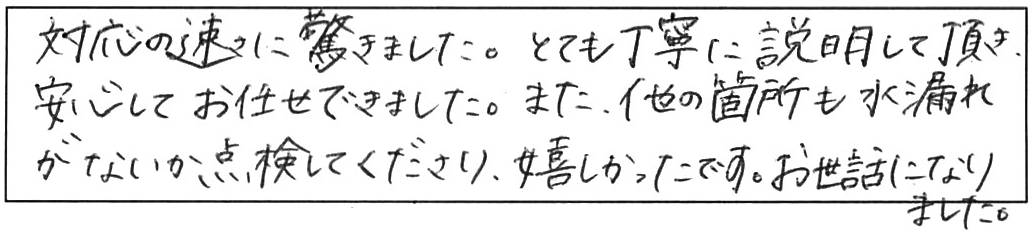 対応の速さに驚きました。とても丁寧に説明して頂き、
安心してお任せできました。また、他の箇所も水漏れ
がないか点検してくださり、嬉しかったです。お世話になり
ました。